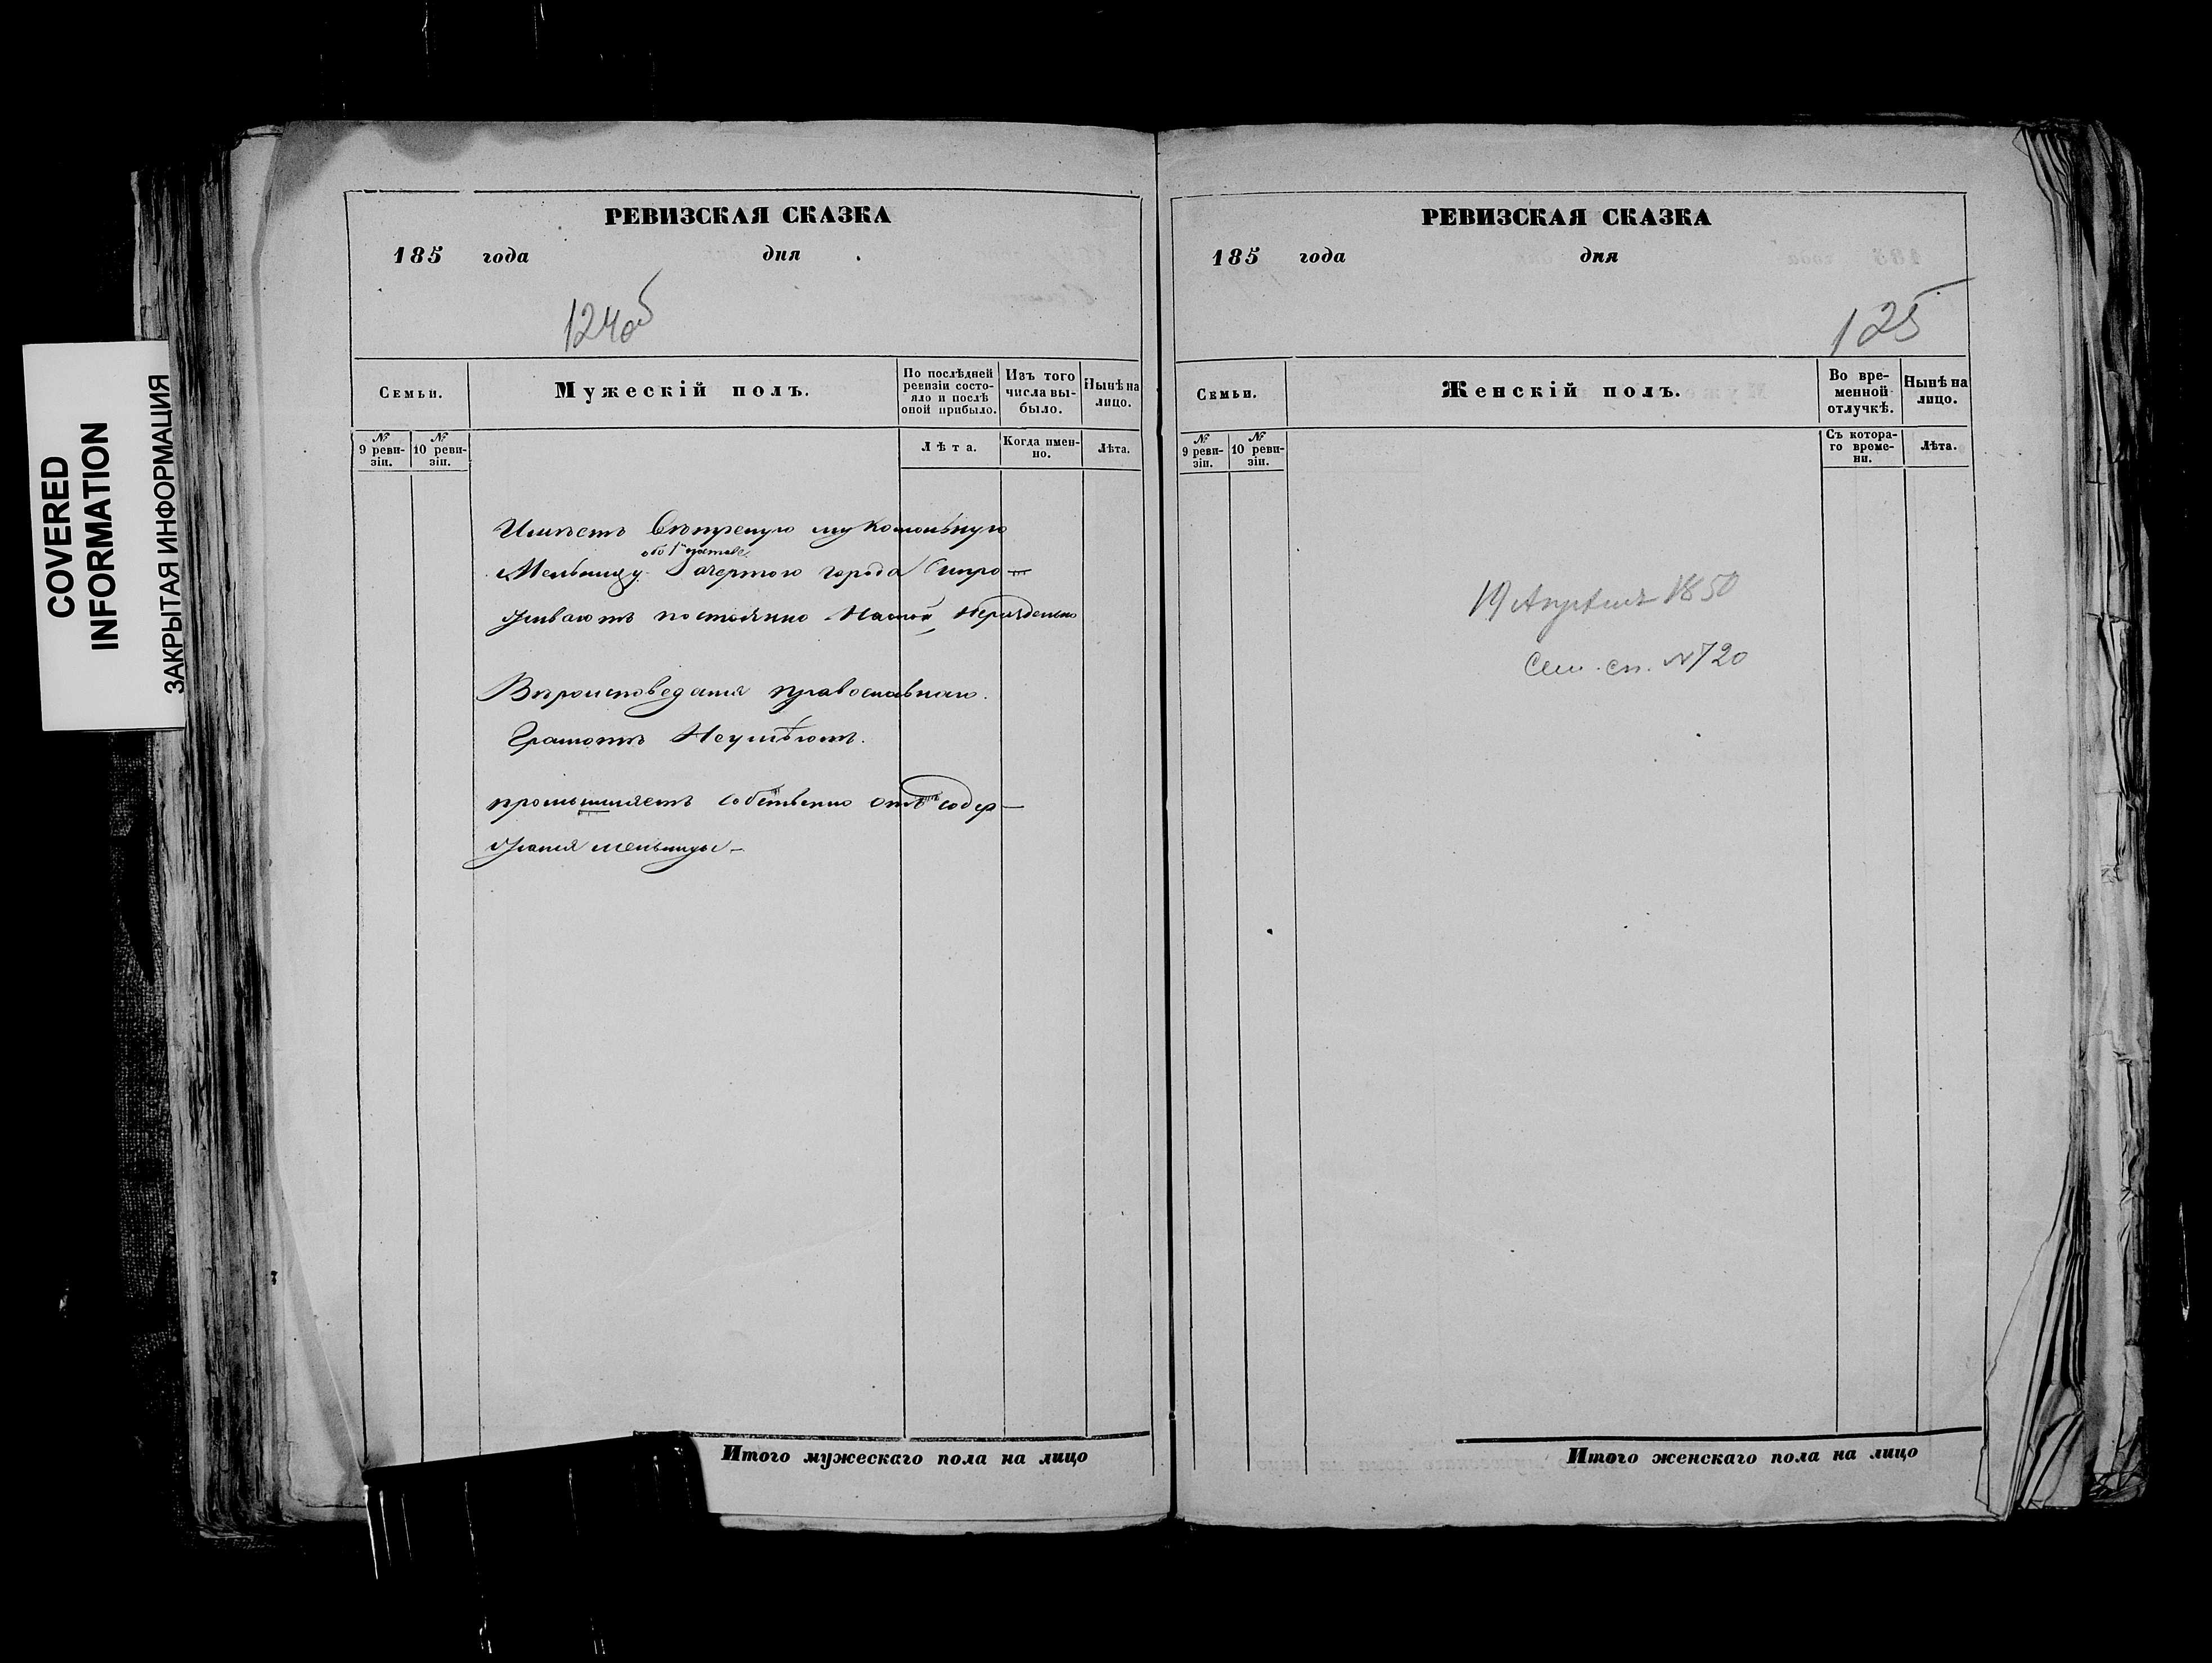 COVERED
INFORMATION
ЗАКРЫТАЯ ИНФОРМАЦИЯ
РЕВИЗСКАЯ СКАЗКА
185 года дня
124об
Семьи.
Мужескій полъ.
По послѣдней ревизіи состояло и послѣ оной прибыло.
Изъ того числа выбыло.
Нынѣ на лицо.
№ 9 ревизіи.
№ 10 ревизіи.
Лѣта.
Когда именно.
Лѣта.
Имѣетъ Вѣтреную мукомольную
Мельницу за чертою города и про-
живаютъ постоянно
Вѣроисповеданія православнаго.
Грамотѣ Неумѣютъ.
промышляетъ собственно отъ содер-
жанія мельницы-
Итого мужескаго пола на лицо
РЕВИЗСКАЯ СКАЗКА
185 года дня
125
Семьи.
Женскій полъ.
Во временной отлучкѣ.
Нынѣ на лицо.
№ 9 ревизіи.
№ 10 ревизіи.
Съ котораго времени.
Лѣта.
19 Апрѣля 1850
Сем. сп. №720
Итого женскаго пола на лицо